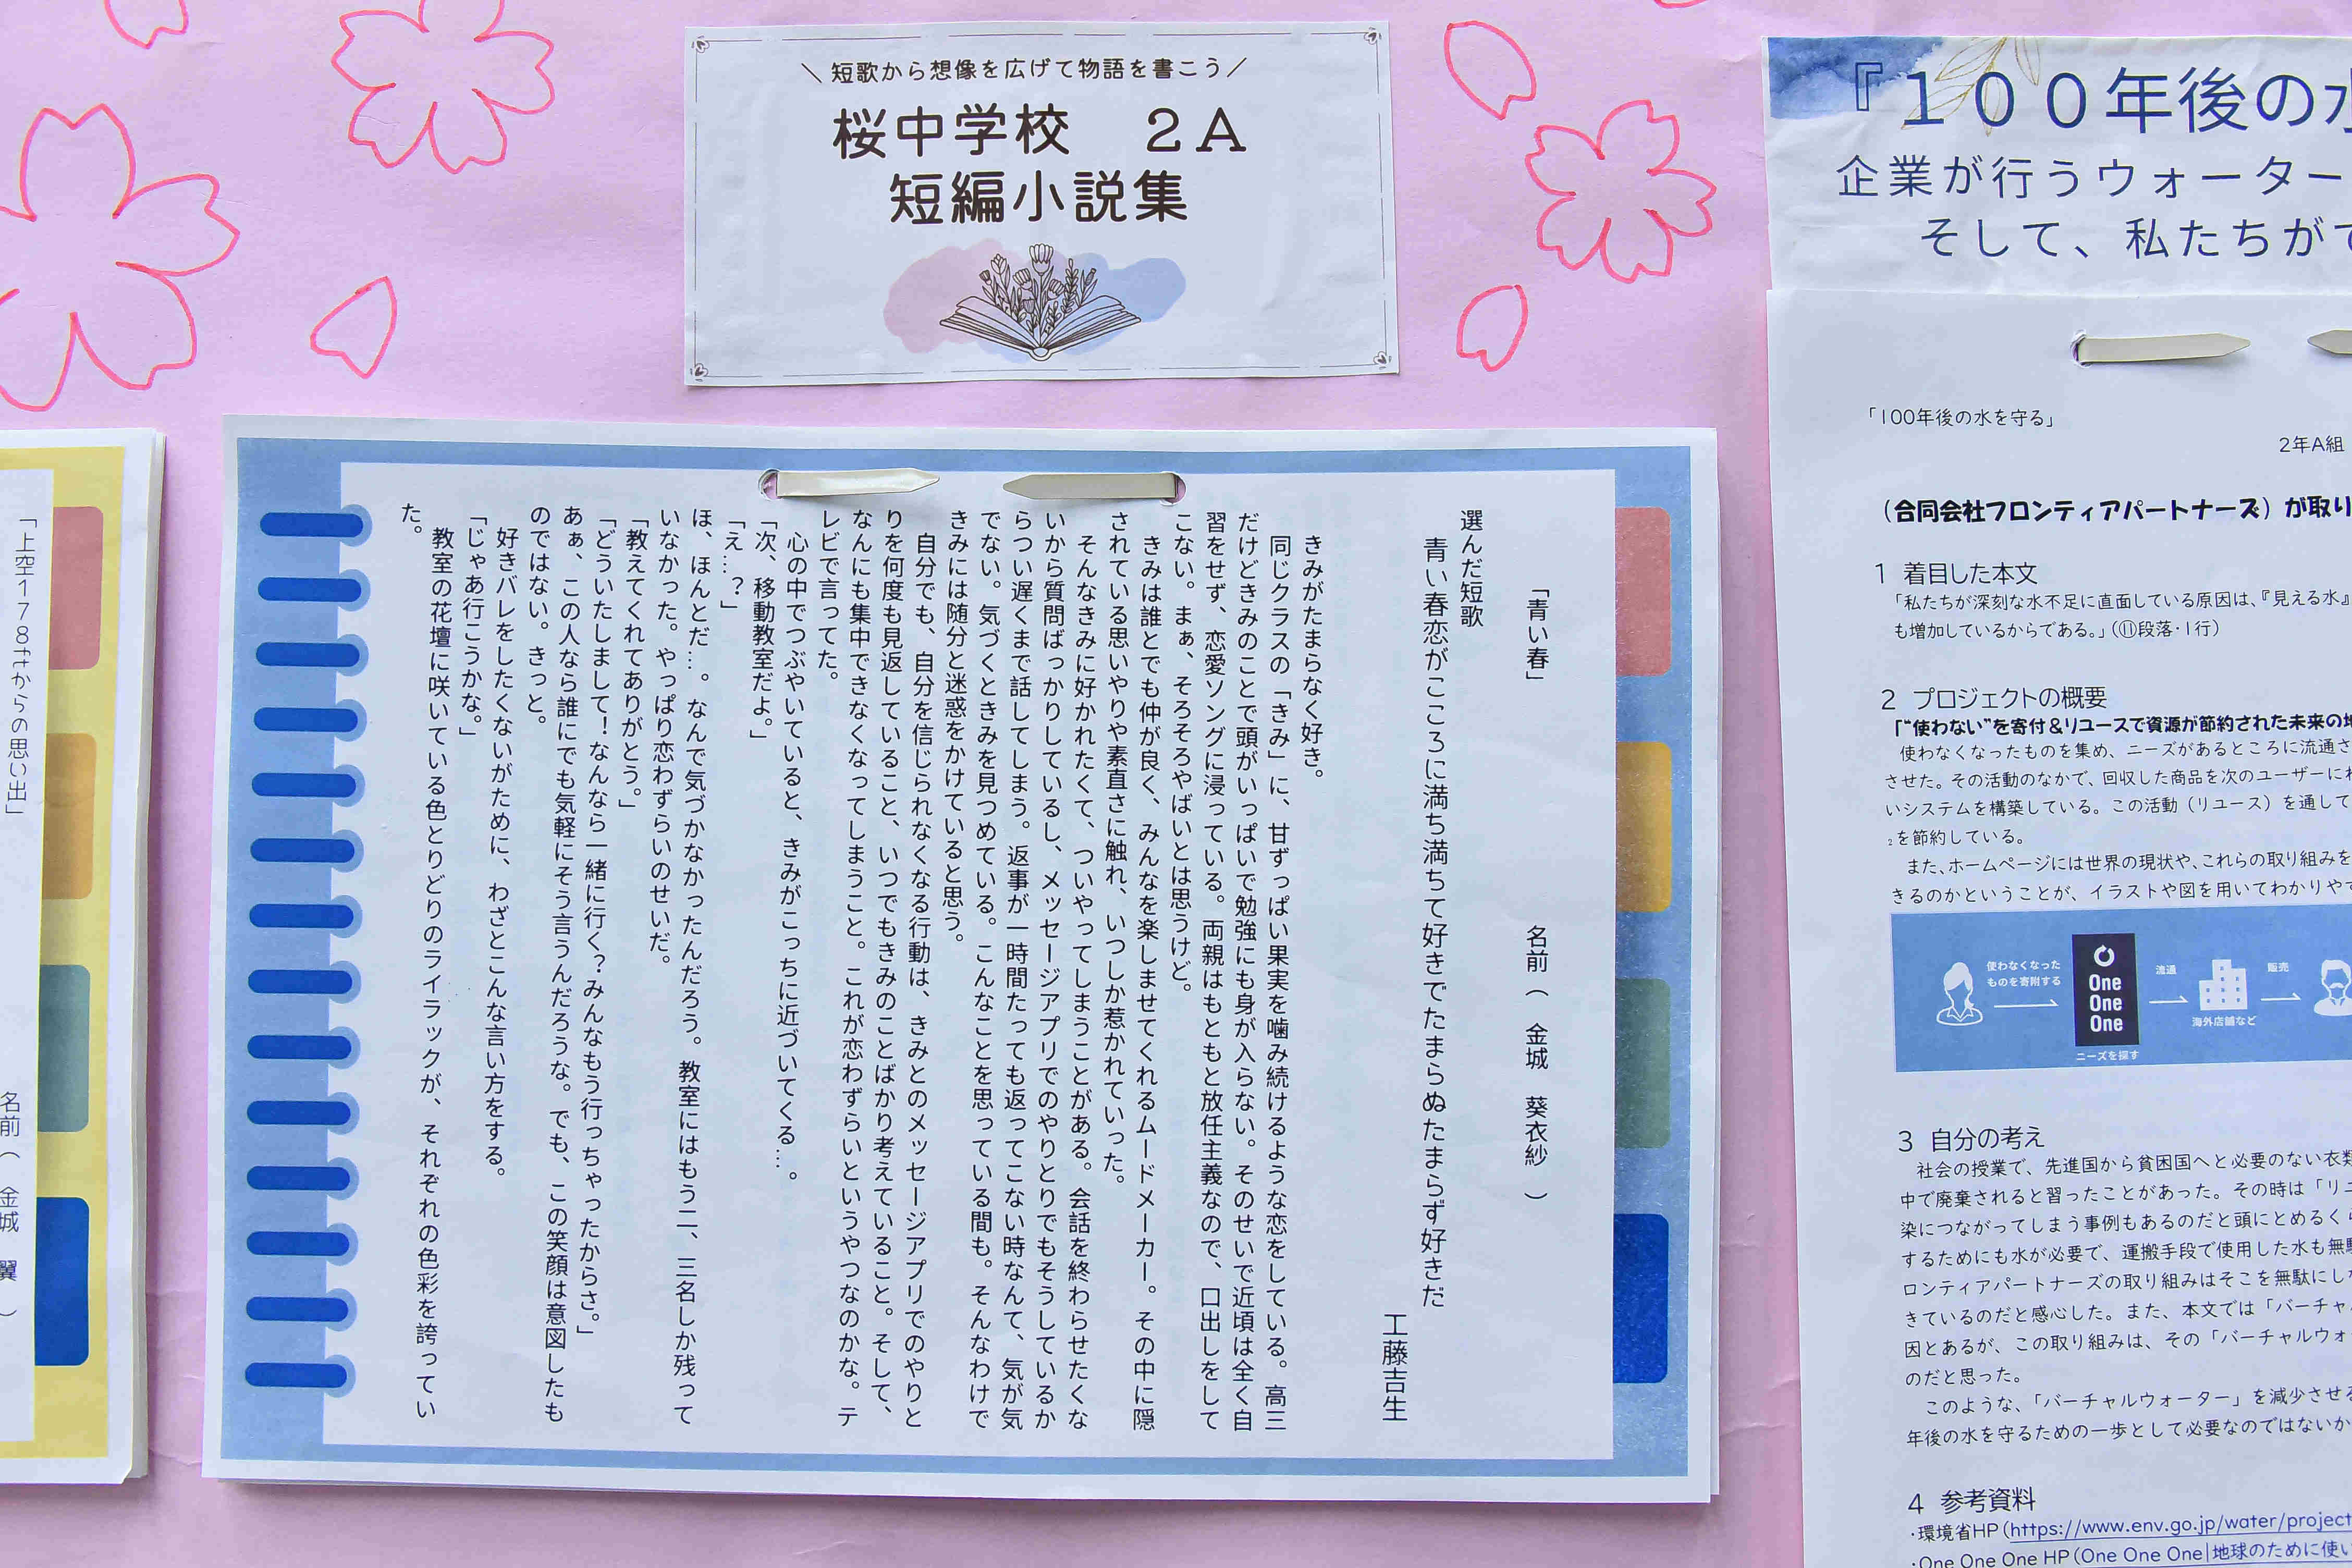 ＼短歌から想像を広げて物語を書こう／
桜中学校　２Ａ
短編小説集
「青い春」　名前（　金城　葵衣紗　）
選んだ短歌
青い春恋がこころに満ち満ちて好きでたまらぬたまらず好きだ
工藤吉生
きみがたまらなく好き。
同じクラスの「きみ」に、甘ずっぱい果実を噛み続けるような恋をしている。高三
だけどきみのことで頭がいっぱいで勉強にも身が入らない。そのせいで近頃は全く自
習をせず、恋愛ソングに浸っている。両親はもともと放任主義なので、口出しをして
こない。まぁ、そろそろやばいとは思うけど。
きみは誰とでも仲が良く、みんなを楽しませてくれるムードメーカー。その中に隠
されている思いやりや素直さに触れ、いつしか惹かれていった。
そんなきみに好かれたくて、ついやってしまうことがある。会話を終わらせたくな
いから質問ばっかりしているし、メッセージアプリでのやりとりでもそうしているか
らつい遅くまで話してしまう。返事が一時間たっても返ってこない時なんて、気が気
でない。気づくときみを見つめている。こんなことを思っている間も。そんなわけで
きみには随分と迷惑をかけていると思う。
自分でも、自分を信じられなくなる行動は、きみとのメッセージアプリでのやりと
りを何度も見返していること、いつでもきみのことばかり考えていること。そして、
なんにも集中できなくなってしまうこと。これが恋わずらいというやつなのかな。テ
レビで言ってた。
心の中でつぶやいていると、きみがこっちに近づいてくる…。
「次、移動教室だよ。」
「え…？」
ほ、ほんとだ…。なんで気づかなかったんだろう。教室にはもう二、三名しか残って
いなかった。やっぱり恋わずらいのせいだ。
「教えてくれてありがとう。」
「どういたしまして！なんなら一緒に行く？みんなもう行っちゃったからさ。」
あぁ、この人なら誰にでも気軽にそう言うんだろうな。でも、この笑顔は意図したも
のではない。きっと。
好きバレをしたくないがために、わざとこんな言い方をする。
「じゃあ行こうかな。」
教室の花壇に咲いている色とりどりのライラックが、それぞれの色彩を誇ってい
た。
「上空178ftからの思い出」　名前（　金城　翼　）
『１００年後の水
企業が行うウォーター
そして、私たちがで
「100年後の水を守る」
2年A組
（合同会社フロンティアパートナーズ）が取り
1 着目した本文
「私たちが深刻な水不足に直面している原因は、『見える水』
も増加しているからである。」（⑪段落・1行）
2 プロジェクトの概要
「“使わない”を寄付＆リユースで資源が節約された未来の地
使わなくなったものを集め、ニーズがあるところに流通さ
させた。その活動のなかで、回収した商品を次のユーザーに
いシステムを構築している。この活動（リユース）を通して
₂を節約している。
また、ホームページには世界の現状や、これらの取り組みを
きるのかということが、イラストや図を用いてわかりやす
使わなくなった
ものを寄附する
One
One
One
ニーズを探す
流通
海外店舗など
販売
3 自分の考え
社会の授業で、先進国から貧困国へと必要のない衣類
中で廃棄されると習ったことがあった。その時は「リユ
染につながってしまう事例もあるのだと頭にとめるくら
するためにも水が必要で、運搬手段で使用した水も無駄
ロンティアパートナーズの取り組みはそこを無駄にしな
きているのだと感心した。また、本文では「バーチャ
因とあるが、この取り組みは、その「バーチャルウォ
のだと思った。
このような、「バーチャルウォーター」を減少させる
年後の水を守るための一歩として必要なのではないか
4 参考資料
・環境省HP（https://www.env.go.jp/water/project
・One One One HP（One One One|地球のために使い